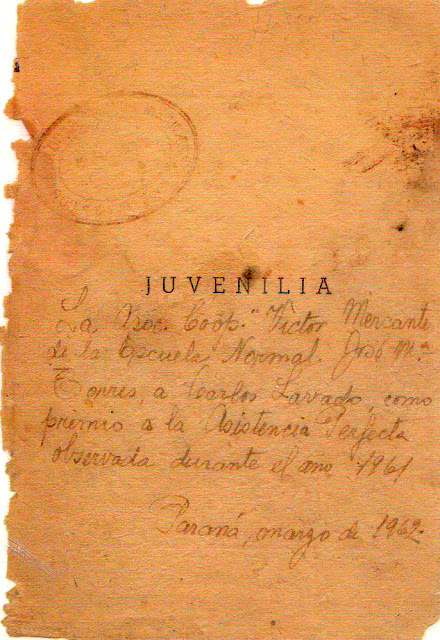 JUVENILIA
La Asoc. Coop. "Victor Mercante
de la Escuela Normal. José M.ª
Torres, a Carlos Lavado, como
premio a la Asistencia Perfecta
observada durante el año 1961
Paraná, marzo de 1962.